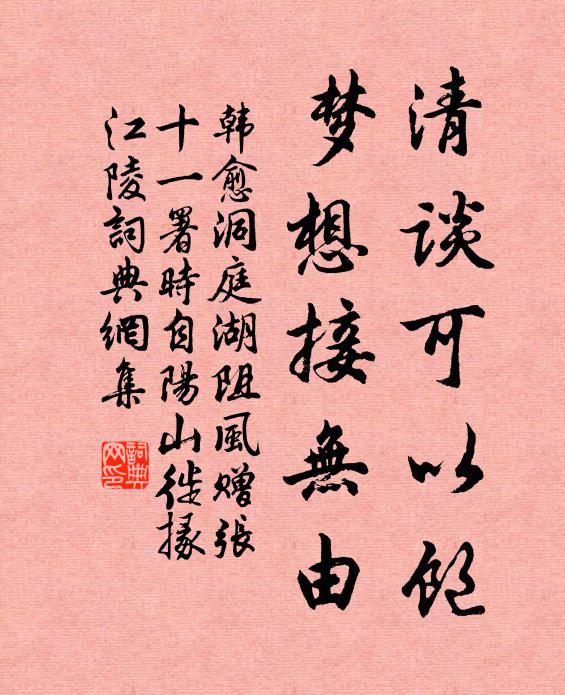 清谈可以饱
梦想接無由
韩愈洞庭湖阻風赠張
十一署時自陽山徙掾
江陵詞典網集
詞典网印